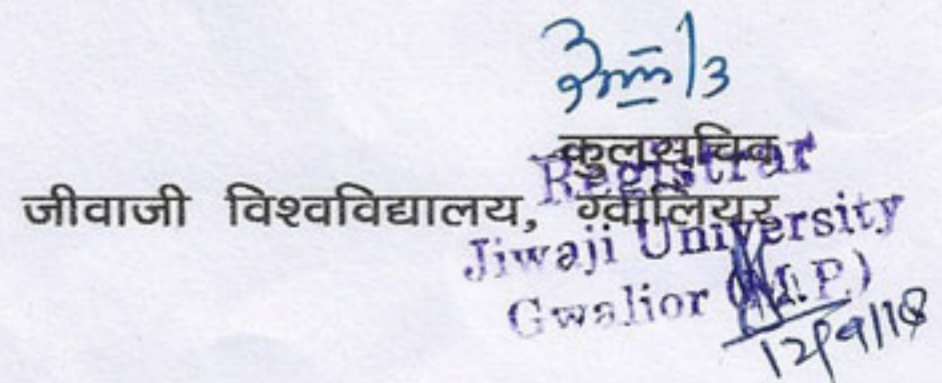 कुलसचिव
जीवाजी विश्वविद्यालय, ग्वालियर
Registrar
Jiwaji University
Gwalior (M.P.)
12/9/18